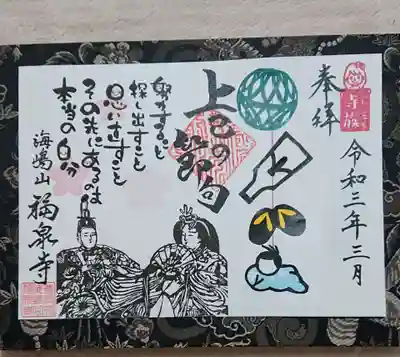 奉拝
令和三年三月
上巳の節句
すること
探し出すこと
思い直すこと
その先にあるのは
本当の自分
海嶋山
福泉寺